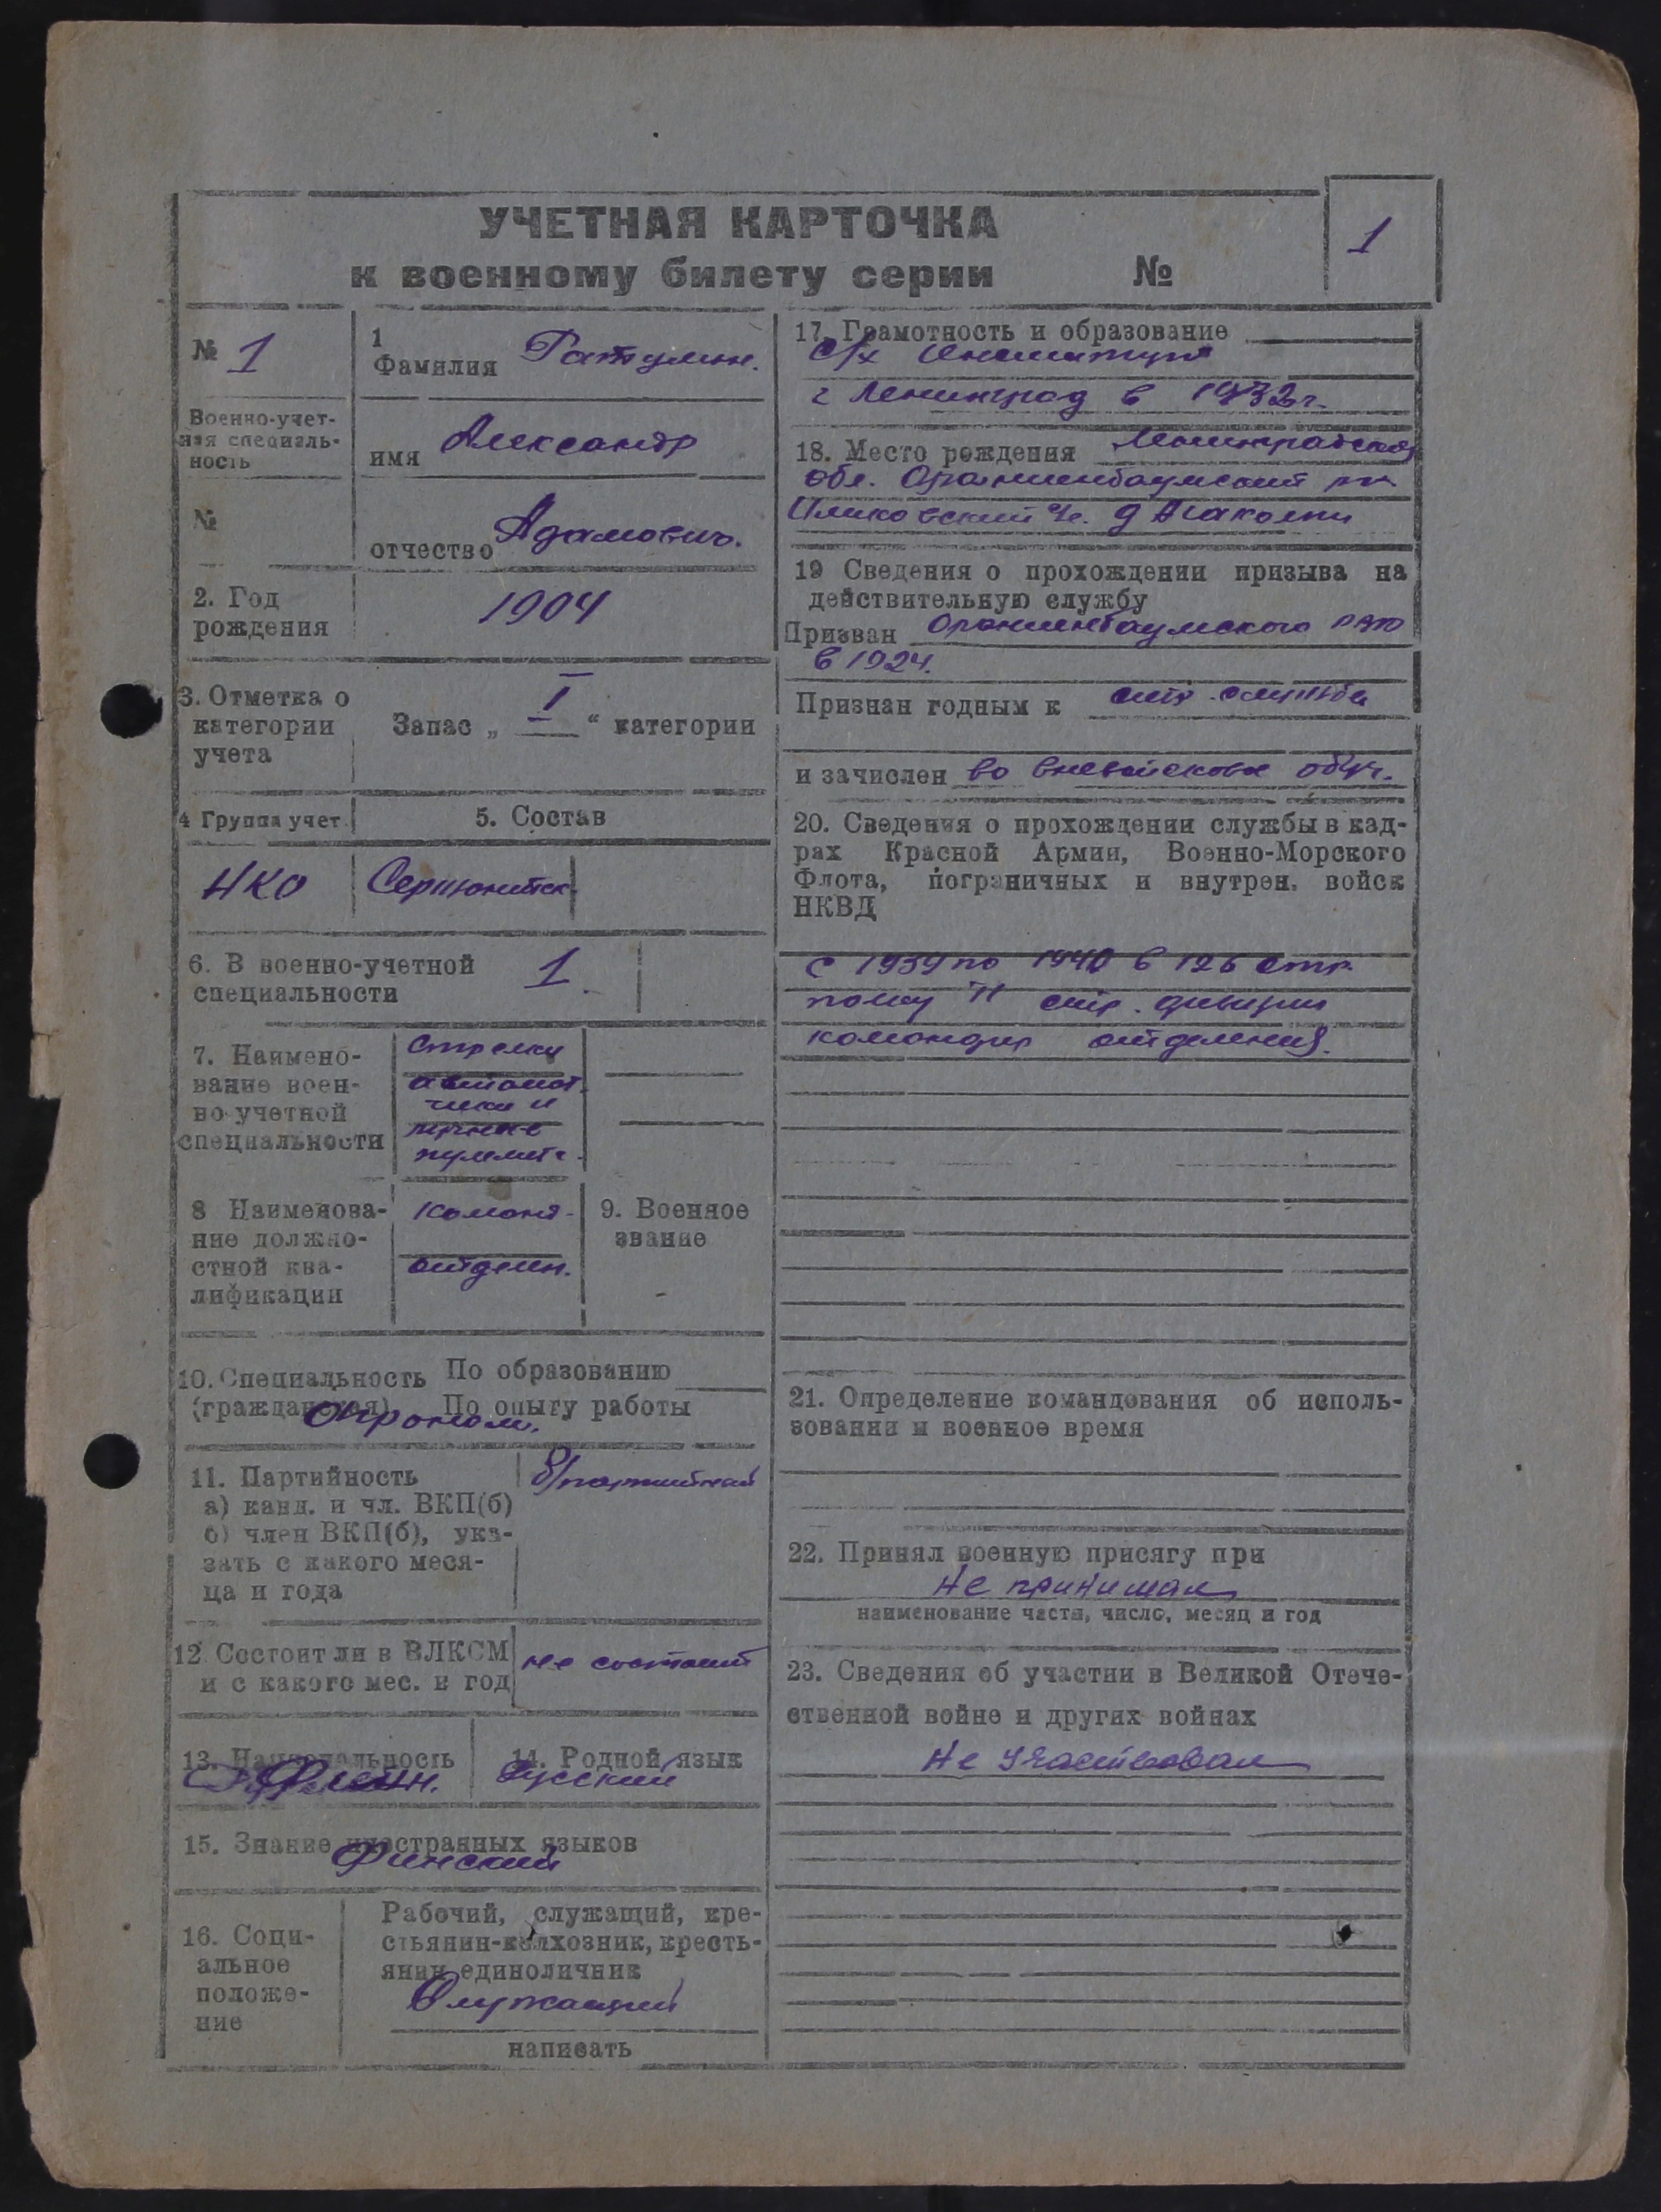 УЧЕТНАЯ КАРТОЧКА
к военному билету серии №
1
№ 1
Военно-учет-
ная специаль-
ность
№
1
Фамилия
имя Александр
отчество Адамович.
2. Год
рождения
1904
3. Отметка о
категории
учета
Запас „ I “ категории
4 Группа учет.
5. Состав
НКО
6. В военно-учетной
специальности
1
7. Наимено-
вание воен-
но-учетной
специальности
Стрелки
автомат.
чики и
пулемет.
8 Наименова-
ние должно-
стной ква-
лификации
Команд.
отделен.
9. Военное
звание
10. Специальность По образованию
(гражданская) По опыту работы
Агроном.
11. Партийность
а) канд. и чл. ВКП(б)
б) член ВКП(б), ука-
зать с какого меся-
ца и года
б/партийный
12 Состоит ли в ВЛКСМ
и с какого мес. и год
не состоит
13. Национальность
14. Родной язык
Русский
15. Знание иностранных языков
Финский
16. Соци-
альное
положе-
ние
Рабочий, служащий, кре-
стьянин-колхозник, кресть-
янин единоличник
Служащий
написать
17. Грамотность и образование
с/х Институт
г Ленинград в 1932 г.
18. Место рождения Ленинградская
обл. Ораниенбаумский
19 Сведения о прохождении призыва на
действительную службу
Призван Ораниенбаумского
в 1924.
Признан годным к служба
и зачислен во
20. Сведения о прохождении службы в кад-
рах Красной Армии, Военно-Морского
Флота, пограничных и внутрен. войск
НКВД
с 1939 по 1940 в 126 стр.
полку 11 стр. дивизии
командир отделения.
21. Определение командования об исполь-
зовании в военное время
22. Принял военную присягу при
Не принимал
наименование части, число, месяц и год
23. Сведения об участии в Великой Отече-
ственной войне и других войнах
Не участвовал